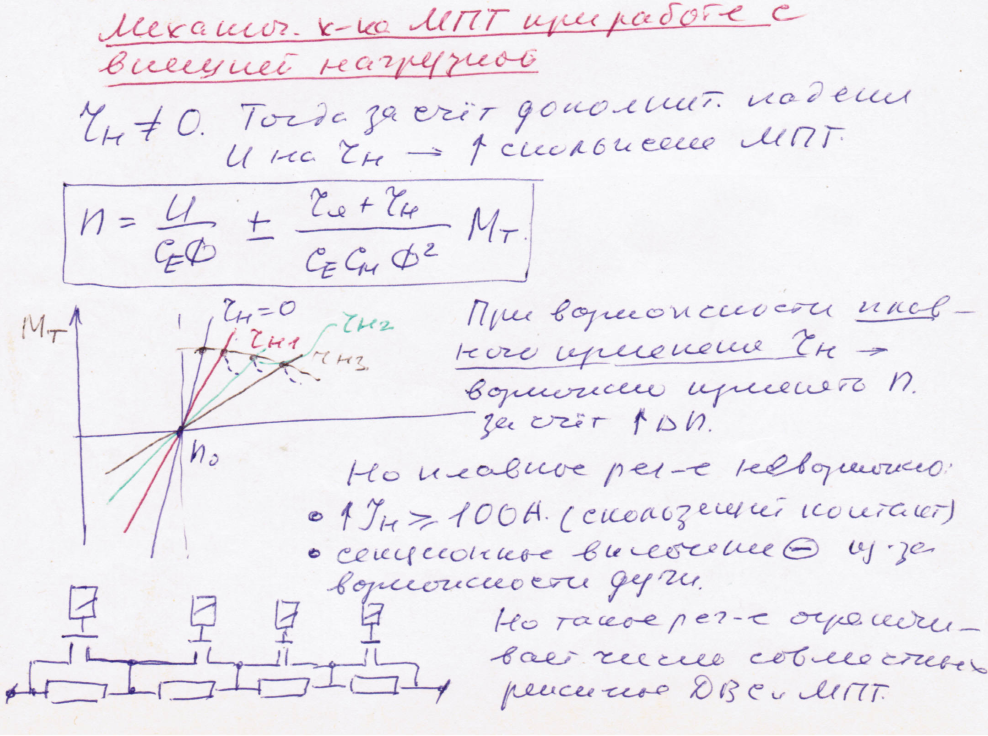 Механич. х-ка МПТ при работе с
внешней нагрузкой
τн ≠ 0. Тогда за счёт дополнит. падения
U на τн → ↑ скольжение МПТ.
n = U / (C_E Φ) ± (τя + τн) / (C_E C_M Φ²) M_T.
M_T
τн=0
τн1
τн2
τн3
n₀
При возможности плав-
ного применения τн →
возможно применять n.
за счёт ↑ Δn.
Но плавное рег-е невозможно:
• ↑ Jн ≥ 100А. (скользящий контакт)
• секционные включение ⊖ из-за
возможности дуги.
Но такое рег-е ограничи-
вает число совместных
режимов ДВС и МПТ.